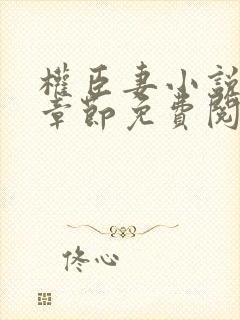 權臣妻小說
章節免費閱
佟心